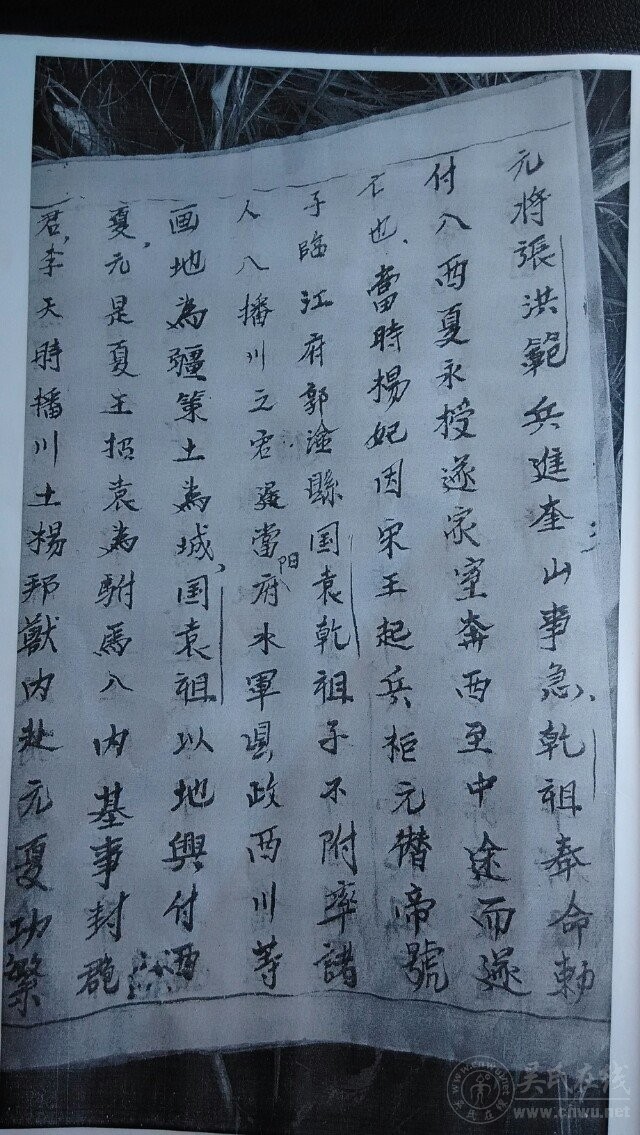 元将張洪範兵進奎山事急、乾祖奉命勅
付入西夏永授遂家室奔西至中途而遂
亡也、當時楊妃因宋王起兵柜元僣帝號
子臨江府郭淦縣国袁乾祖子不附率諸
人入播川立宕當阳府水軍政西川等
画地為疆策土為城,国袁祖以地與付西
夏,元是夏王招袁為駙馬入内基事封
君,李天時播川土楊邦獻内赴元夏功繁
三
吳氏在线
www.cnwu.net